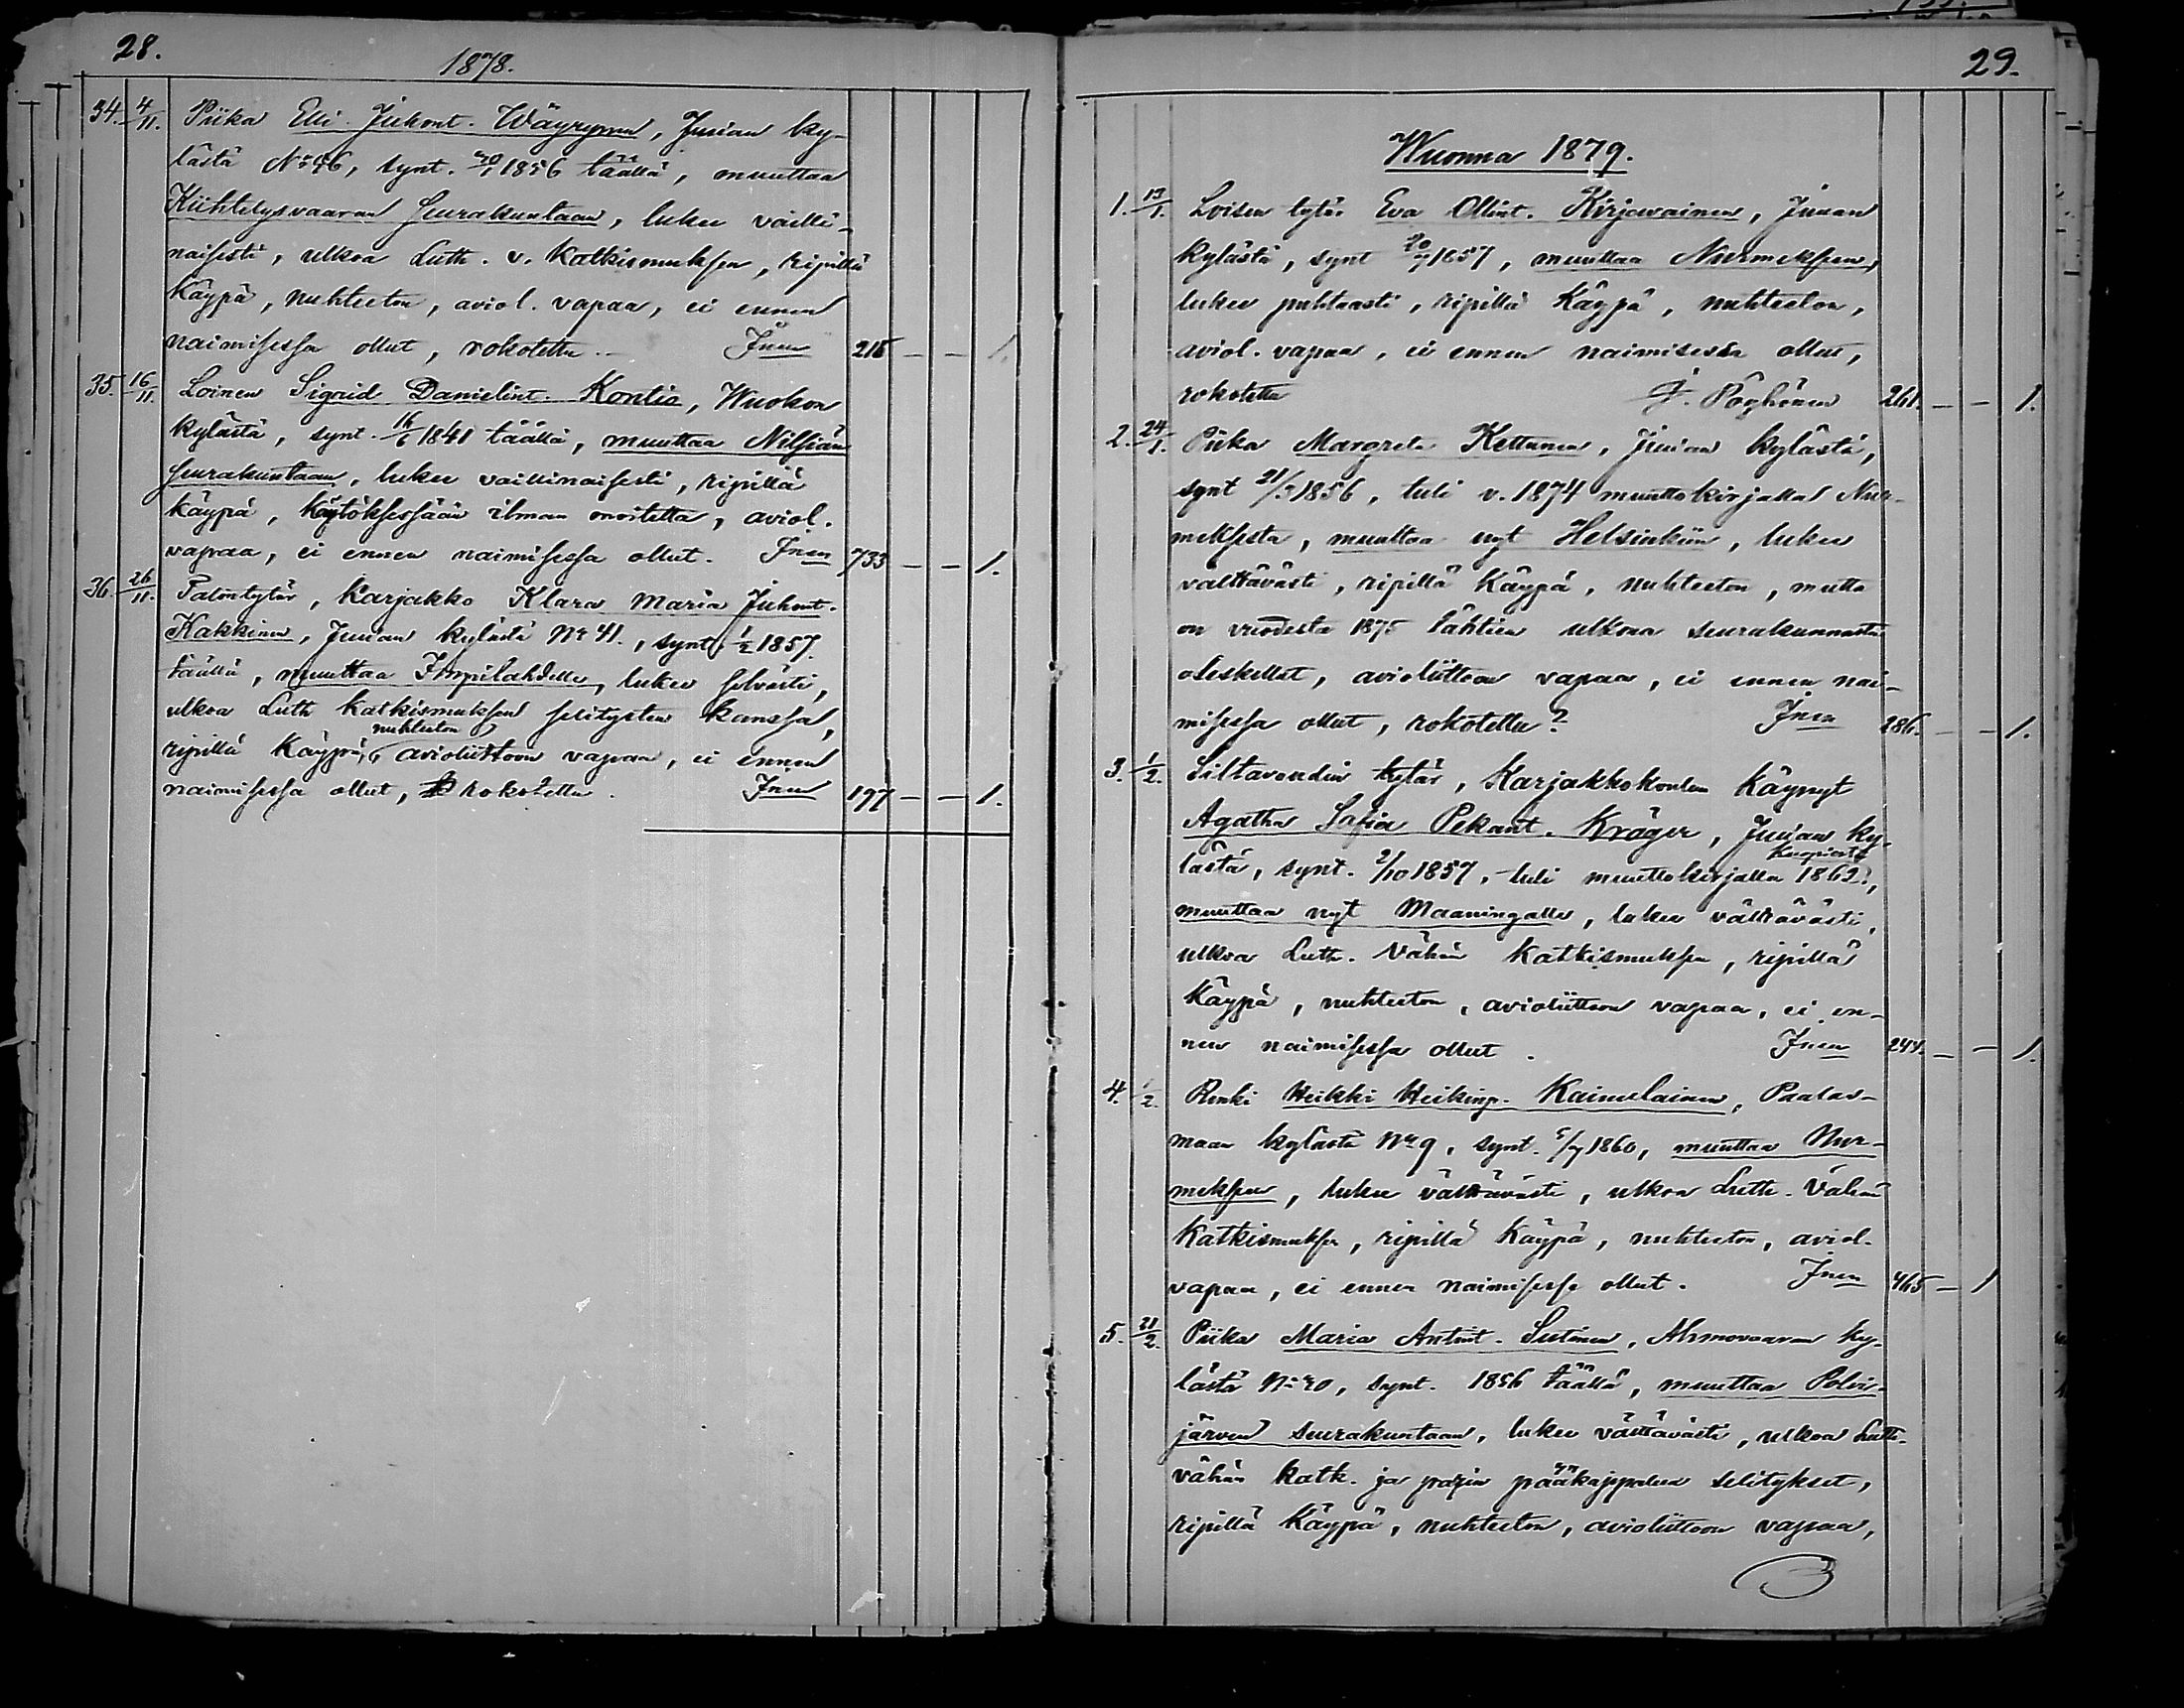 28.
1878.
34. 4/11. Piika Elli Juhont. Wäyrynen, Juuan ky-
lästä No 46, synt. 1856 täällä, muuttaa
Kiihtelysvaaran seurakuntaan, lukee vailli-
naisesti, ulkoa Luth. v. Katkismuksen, ripillä
Käypä, nuhteeton, aviol. vapaa, ei ennen
naimisessa ollut, rokotettu. Jnen 215 — — 1.
35. 16/11. Loinen Sigrid Danielint. Kontio, Wuokon
kylästä, synt. 16/6 1841 täällä, muuttaa Nilsiän
seurakuntaan, lukee vaillinaisesti, ripillä
käypä, käytöksessään ilman moitetta, aviol.
vapaa, ei ennen naimisessa ollut. Jnen 733 — — 1.
36. 26/11. Talontytär, karjakko Klara Maria Juhont.
Kakkinen, Juuan kylästä No 41., synt. 1/2 1857.
täällä, muuttaa Impilahdelle, lukee selvästi,
ulkoa Luth Katkismuksen selitysten kanssa,
nuhteeton
ripillä Käypä, avioliittoon vapaa, ei ennen
naimisessa ollut, rokotettu. Jnen 197 — — 1.
29.
Wuonna 1879.
1. 13/1. Loisen tytär Eva Ollint. Kirjavainen, Juuan
kylästä, synt 20/7 1857, muuttaa Nurmeksen,
lukee puhtaasti, ripillä Käypä, nuhteeton,
aviol. vapaa, ei ennen naimisessa ollut,
rokotettu J. Pöyhönen 261. — — 1.
2. 24/1. Piika Margreta Kettunen, Juuan kylästä,
synt 21/5 1856, tuli v. 1874 muuttokirjalla Nur-
meksesta, muuttaa nyt Helsinkiin, lukee
välttävästi, ripillä Käypä, nuhteeton, mutta
on vuodesta 1875 lähtien ulkona seurakunnasta
oleskellut, avioliittoon vapaa, ei ennen nai-
misessa ollut, rokotettu? Jnen 286. — — 1.
3. 1/2. Siltavoudin tytär, Karjakkokoulun Käynyt
Agatha Sofia Pekant. Kröger, Juuan ky-
Kuopiosta
lästä, synt. 2/10 1857, tuli muuttokirjalla 1862.,
muuttaa nyt Maaningalle, lukee välttävästi,
ulkoa Luth. Vähän Katkismuksen, ripillä
Käypä, nuhteeton, avioliittoon vapaa, ei en-
nen naimisessa ollut. Jnen 244. — — 1.
4. 1/2. Renki Heikki Heikinp. Kaimelainen, Paalas-
maan kylästä No 9, synt. 5/7 1860, muuttaa Nur-
meksen, lukee välttävästi, ulkoa Luth. Vähän
Katkismuksen, ripillä Käypä, nuhteeton, aviol.
vapaa, ei ennen naimisessa ollut. Jnen 465 — 1
5. 21/2. Piika Maria Antint. Sutinen, Ahmovaaran ky-
lästä No 20, synt. 1856 täällä, muuttaa Polvi-
järven seurakuntaan, lukee välttävästi, ulkoa Luth.
vähän katk. ja parin pääkappaleen selitykset,
ripillä Käypä, nuhteeton, avioliittoon vapaa,